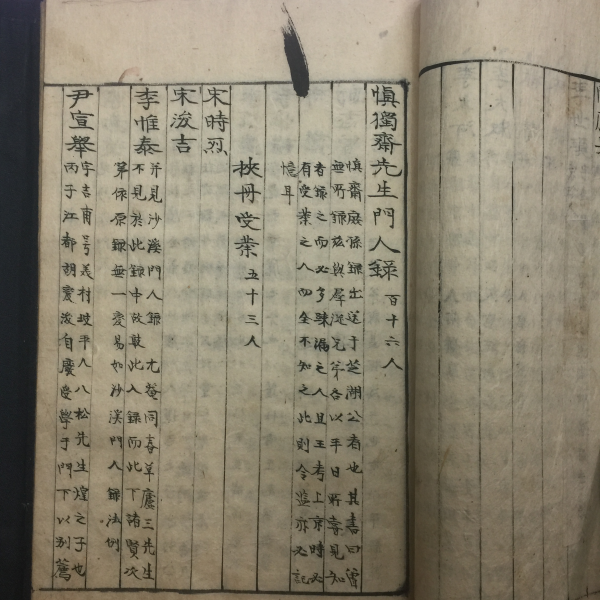 愼獨齋先生門人錄 百十六人
愼齋庭條錄出送于芝湖公者也其書曰曾
無所錄玆與群從兄弟各以平日所嘗見知
者錄之而必多疎漏之人且王考上京時必
有受業之人而全不知之此則令監亦必記
憶耳
挾冊受業 五十三人
宋時烈
宋浚吉
李惟泰 并見沙溪門人錄 尤菴同春草廬三先生
不見於此錄中故敢此入錄而此下諸賢次
第依原錄無一變易如沙溪門人錄法例
尹宣擧 字吉甫号美村坡平人八松先生煌之子也
丙子江都胡變後自廢受學于門下以別薦